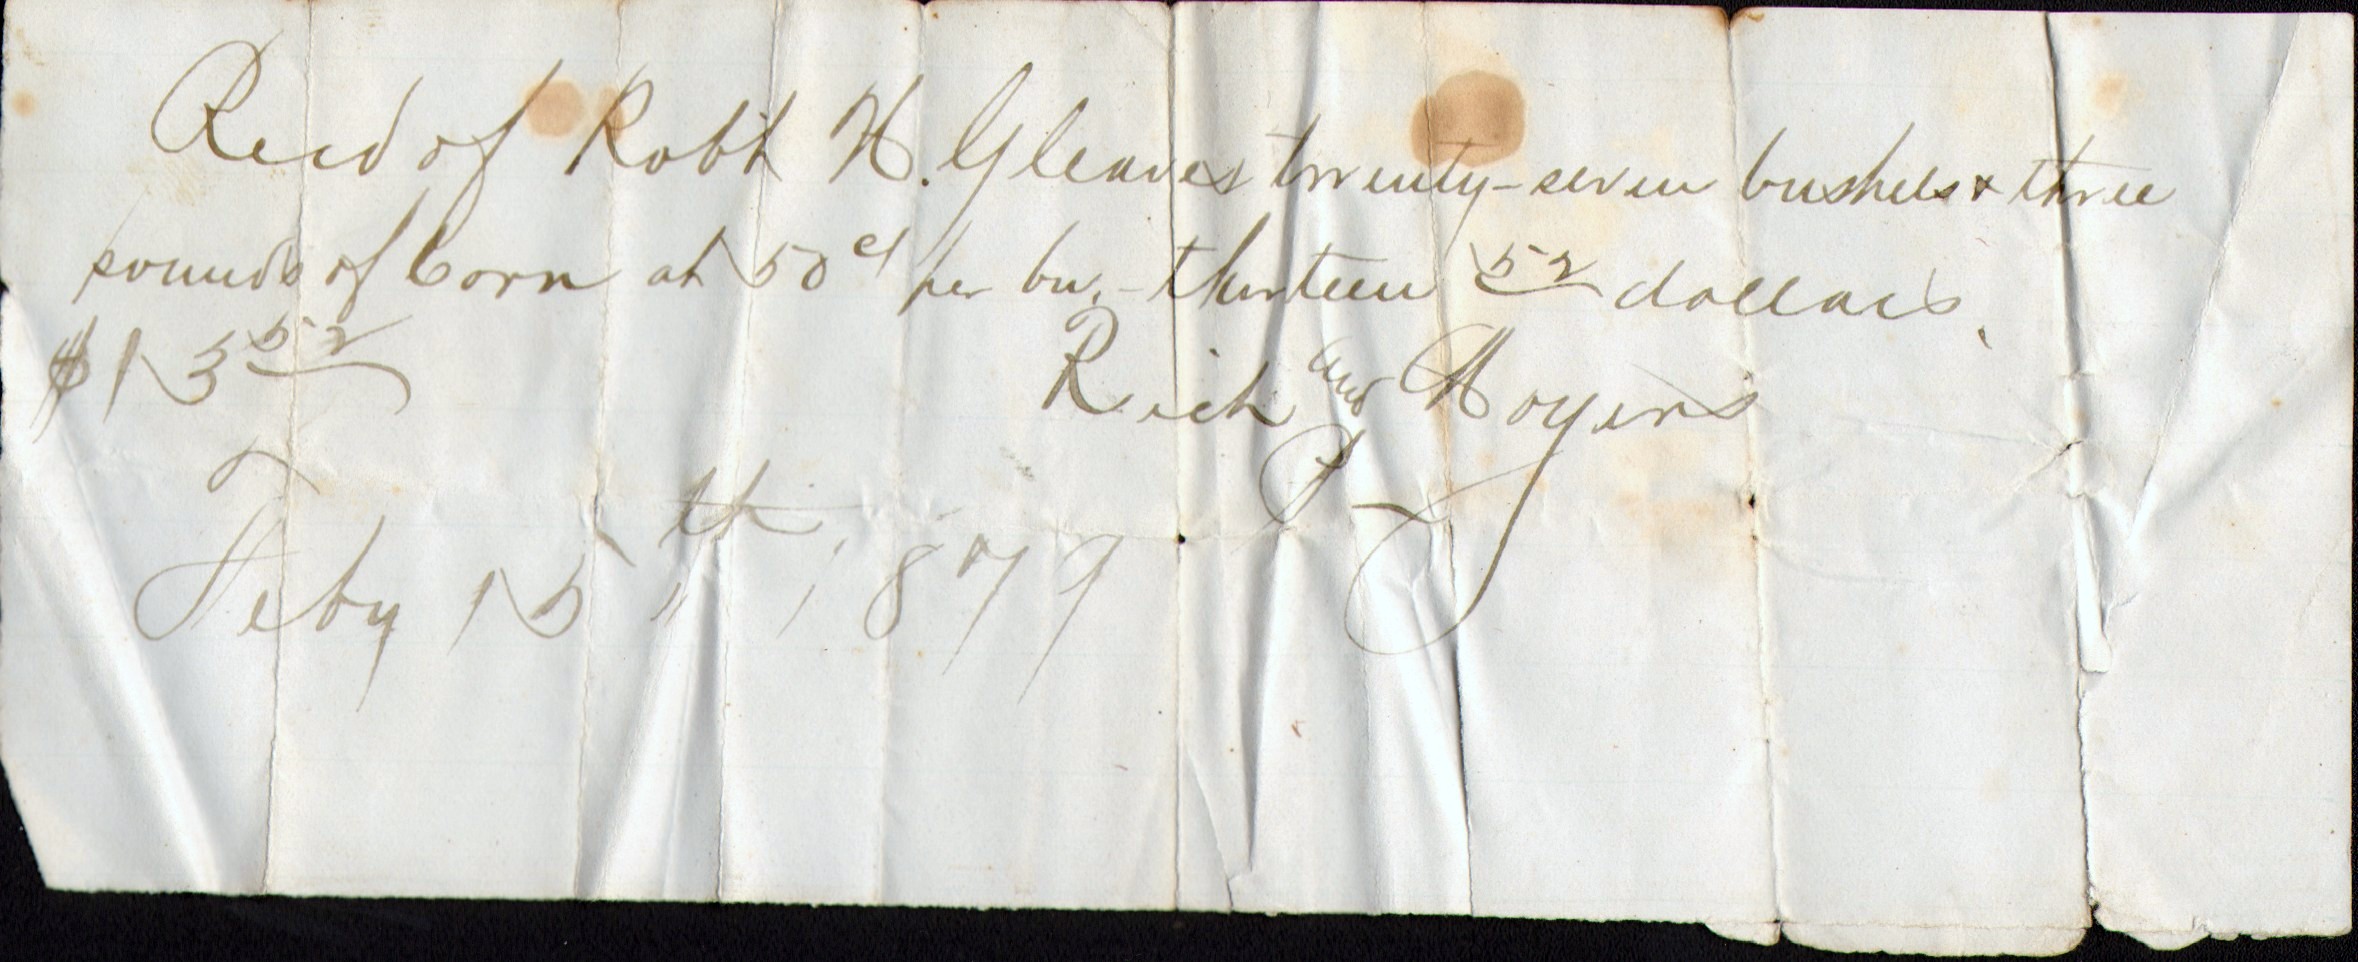 Recd of Robt H. Gleaves twenty-seven bushels & three
pounds of Corn at 50 ct per bu. - thirteen 52 dollars.
$13 52
Rich and Moyers
P
Feby 15th, 1879